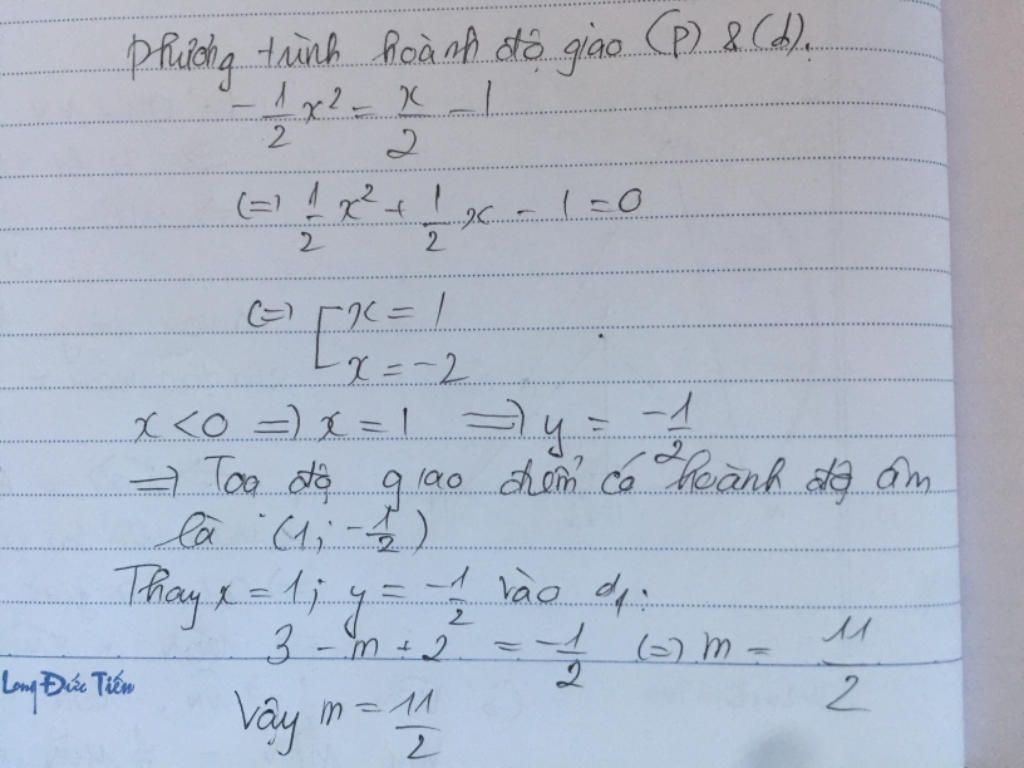 Phương trình hoành độ giao (P) & (d).
-1/2 x² = x/2 - 1
(=) 1/2 x² + 1/2 x - 1 = 0
(=) [ x = 1
x = -2
x < 0 => x = 1 => y = -1/2
=> Toạ độ giao điểm có hoành độ âm
là (1; -1/2)
Thay x = 1; y = -1/2 vào d₁:
3 - m + 2 = -1/2 (=) m = 11/2
Long Đức Tiến
Vậy m = 11/2